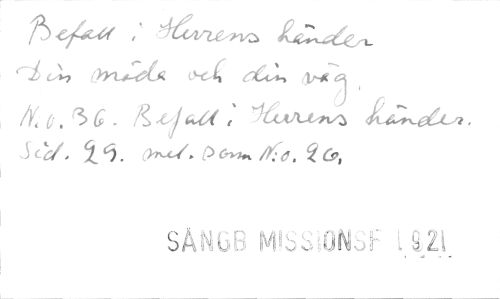 Befall i Herrens händer
Din möda och din väg.
N.o. 36. Befall i Herrens händer.
Sid. 29. mel. som N.o. 26.
SÅNGB MISSIONSF 1921